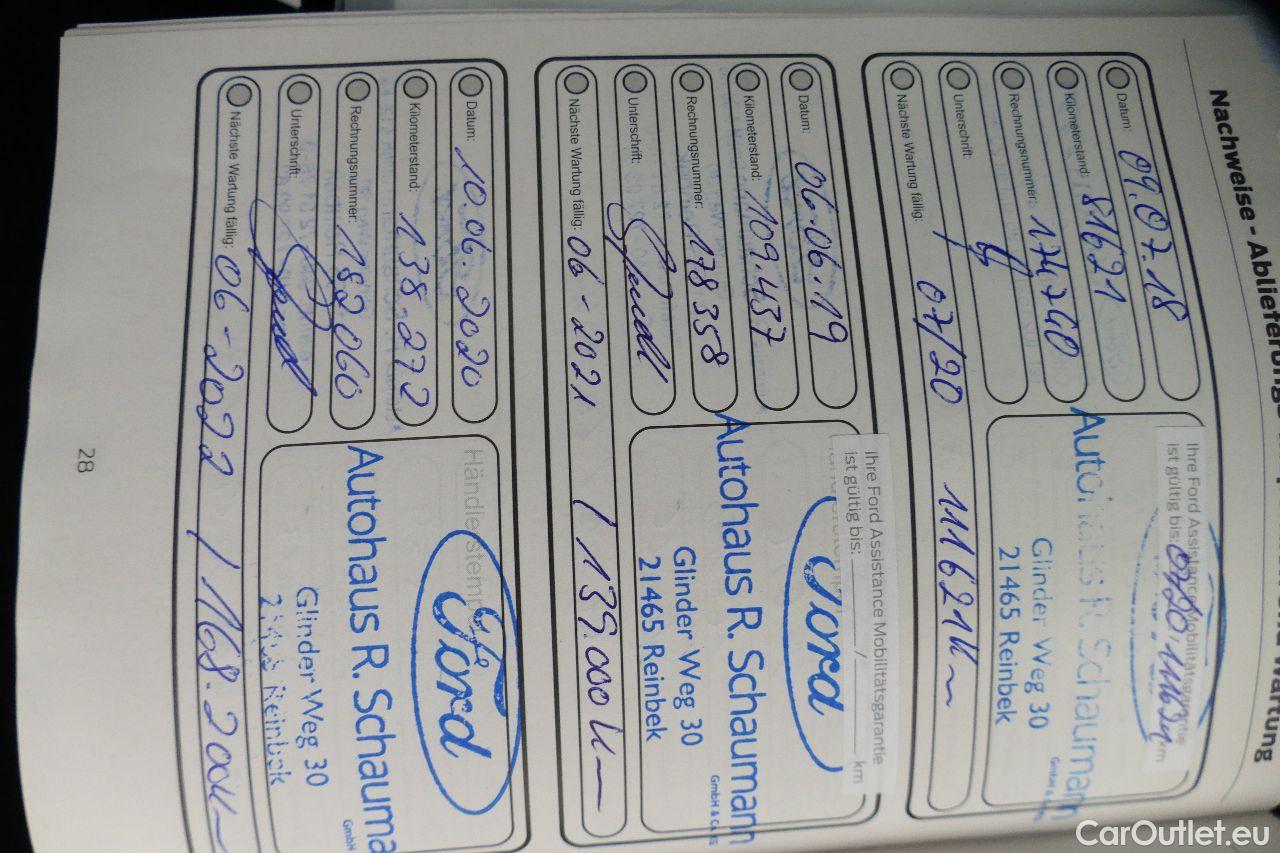 Nachweise - Ablieferungs
Wartung
Datum: 09.07.18
Kilometerstand: 81621
Rechnungsnummer: 174740
Unterschrift:
Nächste Wartung fällig: 07/20 / 111621 Km
Ihre Ford Assistance Mobilitätsgarantie
ist gültig bis: 07/20 / 111621 km
Autohaus R. Schaumann
GmbH & Co. KG
Glinder Weg 30
21465 Reinbek
Datum: 06.06.19
Kilometerstand: 109.437
Rechnungsnummer: 178358
Unterschrift:
Nächste Wartung fällig: 06-2021 / 139.000 Km
Ihre Ford Assistance Mobilitätsgarantie
ist gültig bis: / km
Ford
Autohaus R. Schaumann
GmbH & Co. KG
Glinder Weg 30
21465 Reinbek
Datum: 10.06.2020
Kilometerstand: 138.272
Rechnungsnummer: 182060
Unterschrift:
Nächste Wartung fällig: 06-2022 / 168.200 Km
Händlerstempel
Ford
Autohaus R. Schauma
GmbH
Glinder Weg 30
21465 Reinbek
28
CarOutlet.eu